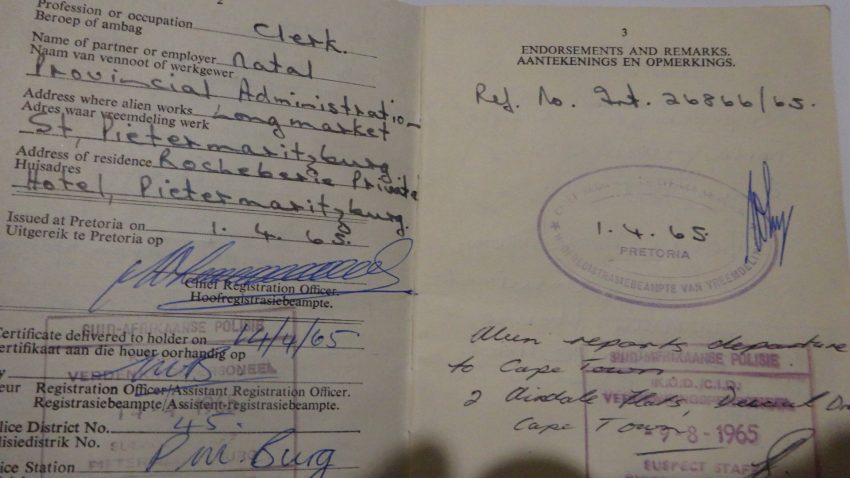 2
Profession or occupation Clerk.
Beroep of ambag
Name of partner or employer Natal
Naam van vennoot of werkgewer
Provincial Administration
Address where alien works Longmarket
Adres waar vreemdeling werk
St, Pietermaritzburg
Address of residence Rocheberie Private
Huisadres
Hotel, Pietermaritzburg.
Issued at Pretoria on 1. 4. 65.
Uitgereik te Pretoria op
Chief Registration Officer.
Hoofregistrasiebeampte.
SUID-AFRIKAANSE POLISIE
Certificate delivered to holder on 14/4/65
ertifikaat aan die houer oorhandig op
y
eur Registration Officer/Assistant Registration Officer.
Registrasiebeampte/Assistent-registrasiebeampte.
lice District No. 45.
lisiedistrik No.
ice Station P.M. Burg
3
ENDORSEMENTS AND REMARKS.
AANTEKENINGS EN OPMERKINGS.
Ref. No. Int. 26866/65.
1. 4. 65.
PRETORIA
HOOFREGISTRASIEBEAMPTE VAN VREEMDELI
Alien reports departure
to Cape Town
SUID-AFRIKAANSE POLISIE
2 Airdale Flats,
Cape Town
-9-8-1965
SUSPECT STAFF